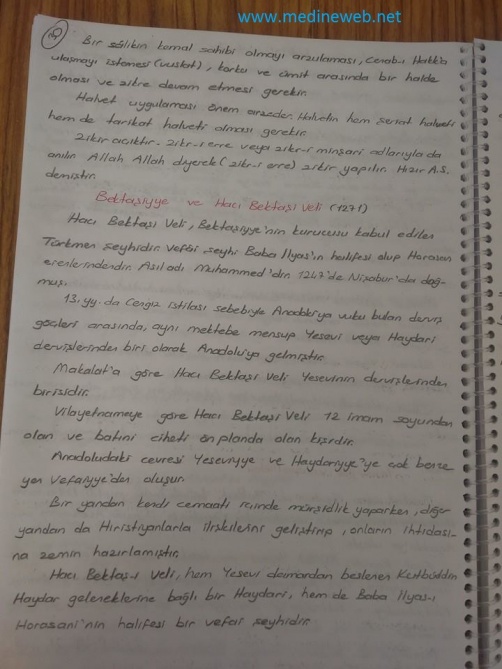 www.medineweb.net
Bir sâlikin kemal sahibi olmayı arzulaması, Cenab-ı Hakk'a
ulaşmayı istemesi (vuslat), korku ve ümit arasında bir halde
olması ve zikre devam etmesi gerekir.
Halvet uygulaması önem arzeder. Halvetin hem şeriat halveti
hem de tarikat halveti olması gerekir.
Zikir açıktır. Zikr-i erre veya zikr-i minşari adlarıyla da
anılır. Allah Allah diyerek (zikr-i erre) zikir yapılır. Hızır A.S.
demiştir.
Bektaşiyye ve Hacı Bektaşi Veli (1271)
Hacı Bektaşi Veli, Bektaşiyye'nin kurucusu kabul edilen
Türkmen şeyhidir. Vefai şeyhi Baba İlyas'ın halifesi olup Horasan
erenlerindendir. Asıl adı Muhammed'dir. 1247'de Nişabur'da doğ-
muş.
13. yy. da Cengiz istilası sebebiyle Anadolu'ya vuku bulan derviş
göçleri arasında, aynı mektebe mensup Yesevi veya Haydari
dervişlerinden biri olarak Anadolu'ya gelmiştir.
Makalat'a göre Hacı Bektaşi Veli Yesevinin dervişlerinden
birisidir.
Vilayetnameye göre Hacı Bektaşi Veli 12 imam soyundan
olan ve batıni ciheti ön planda olan kişidir.
Anadoludaki çevresi Yeseviyye ve Haydariyye'ye çok benze
yen Vefaiyye'den oluşur.
Bir yandan kendi cemaati içinde mürşidlik yaparken, diğer
yandan da Hıristiyanlarla ilişkilerini geliştirip, onların ihtidası-
na zemin hazırlamıştır.
Hacı Bektaş-ı Veli, hem Yesevi damardan beslenen Kutbüddin
Haydar geleneklerine bağlı bir Haydari, hem de Baba İlyas-ı
Horasani'nin halifesi bir vefai şeyhidir.